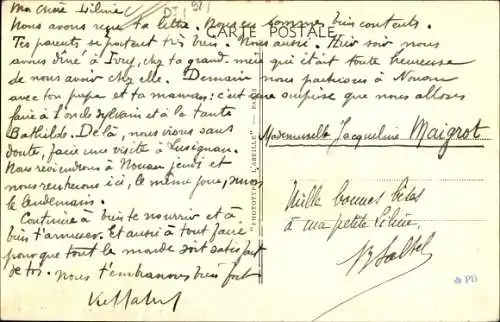 Ma chère Liline
Nous avons reçu ta lettre. Nous en sommes très contents.
CARTE POSTALE
Tes parents se portent très bien. Nous aussi. Hier soir nous
avons dîné à Ivry, chez ta grand-
mère qui était toute heureuse
de nous avoir chez elle. Demain nous partirons à Nouan
avec ton papa et ta maman; c'est une surprise que nous allons
faire à l'oncle Sylvain et à la tante
Bathilde. De là, nous irons sans
doute, faire une visite à Lusignan.
Nous reviendrons à Nouan jeudi et
nous rentrerons ici, le même jour, ou
le lendemain.
Continue à bien te nourrir et à
bien t'amuser. Et aussi à tout faire
pour que tout le monde soit satisfait
de toi. Nous t'embrassons bien fort
"PHOTOTYPIE L'ABEILLE"
Mademoiselle Jacqueline Maigrot
Mille bonnes bises
à ma petite Liline,